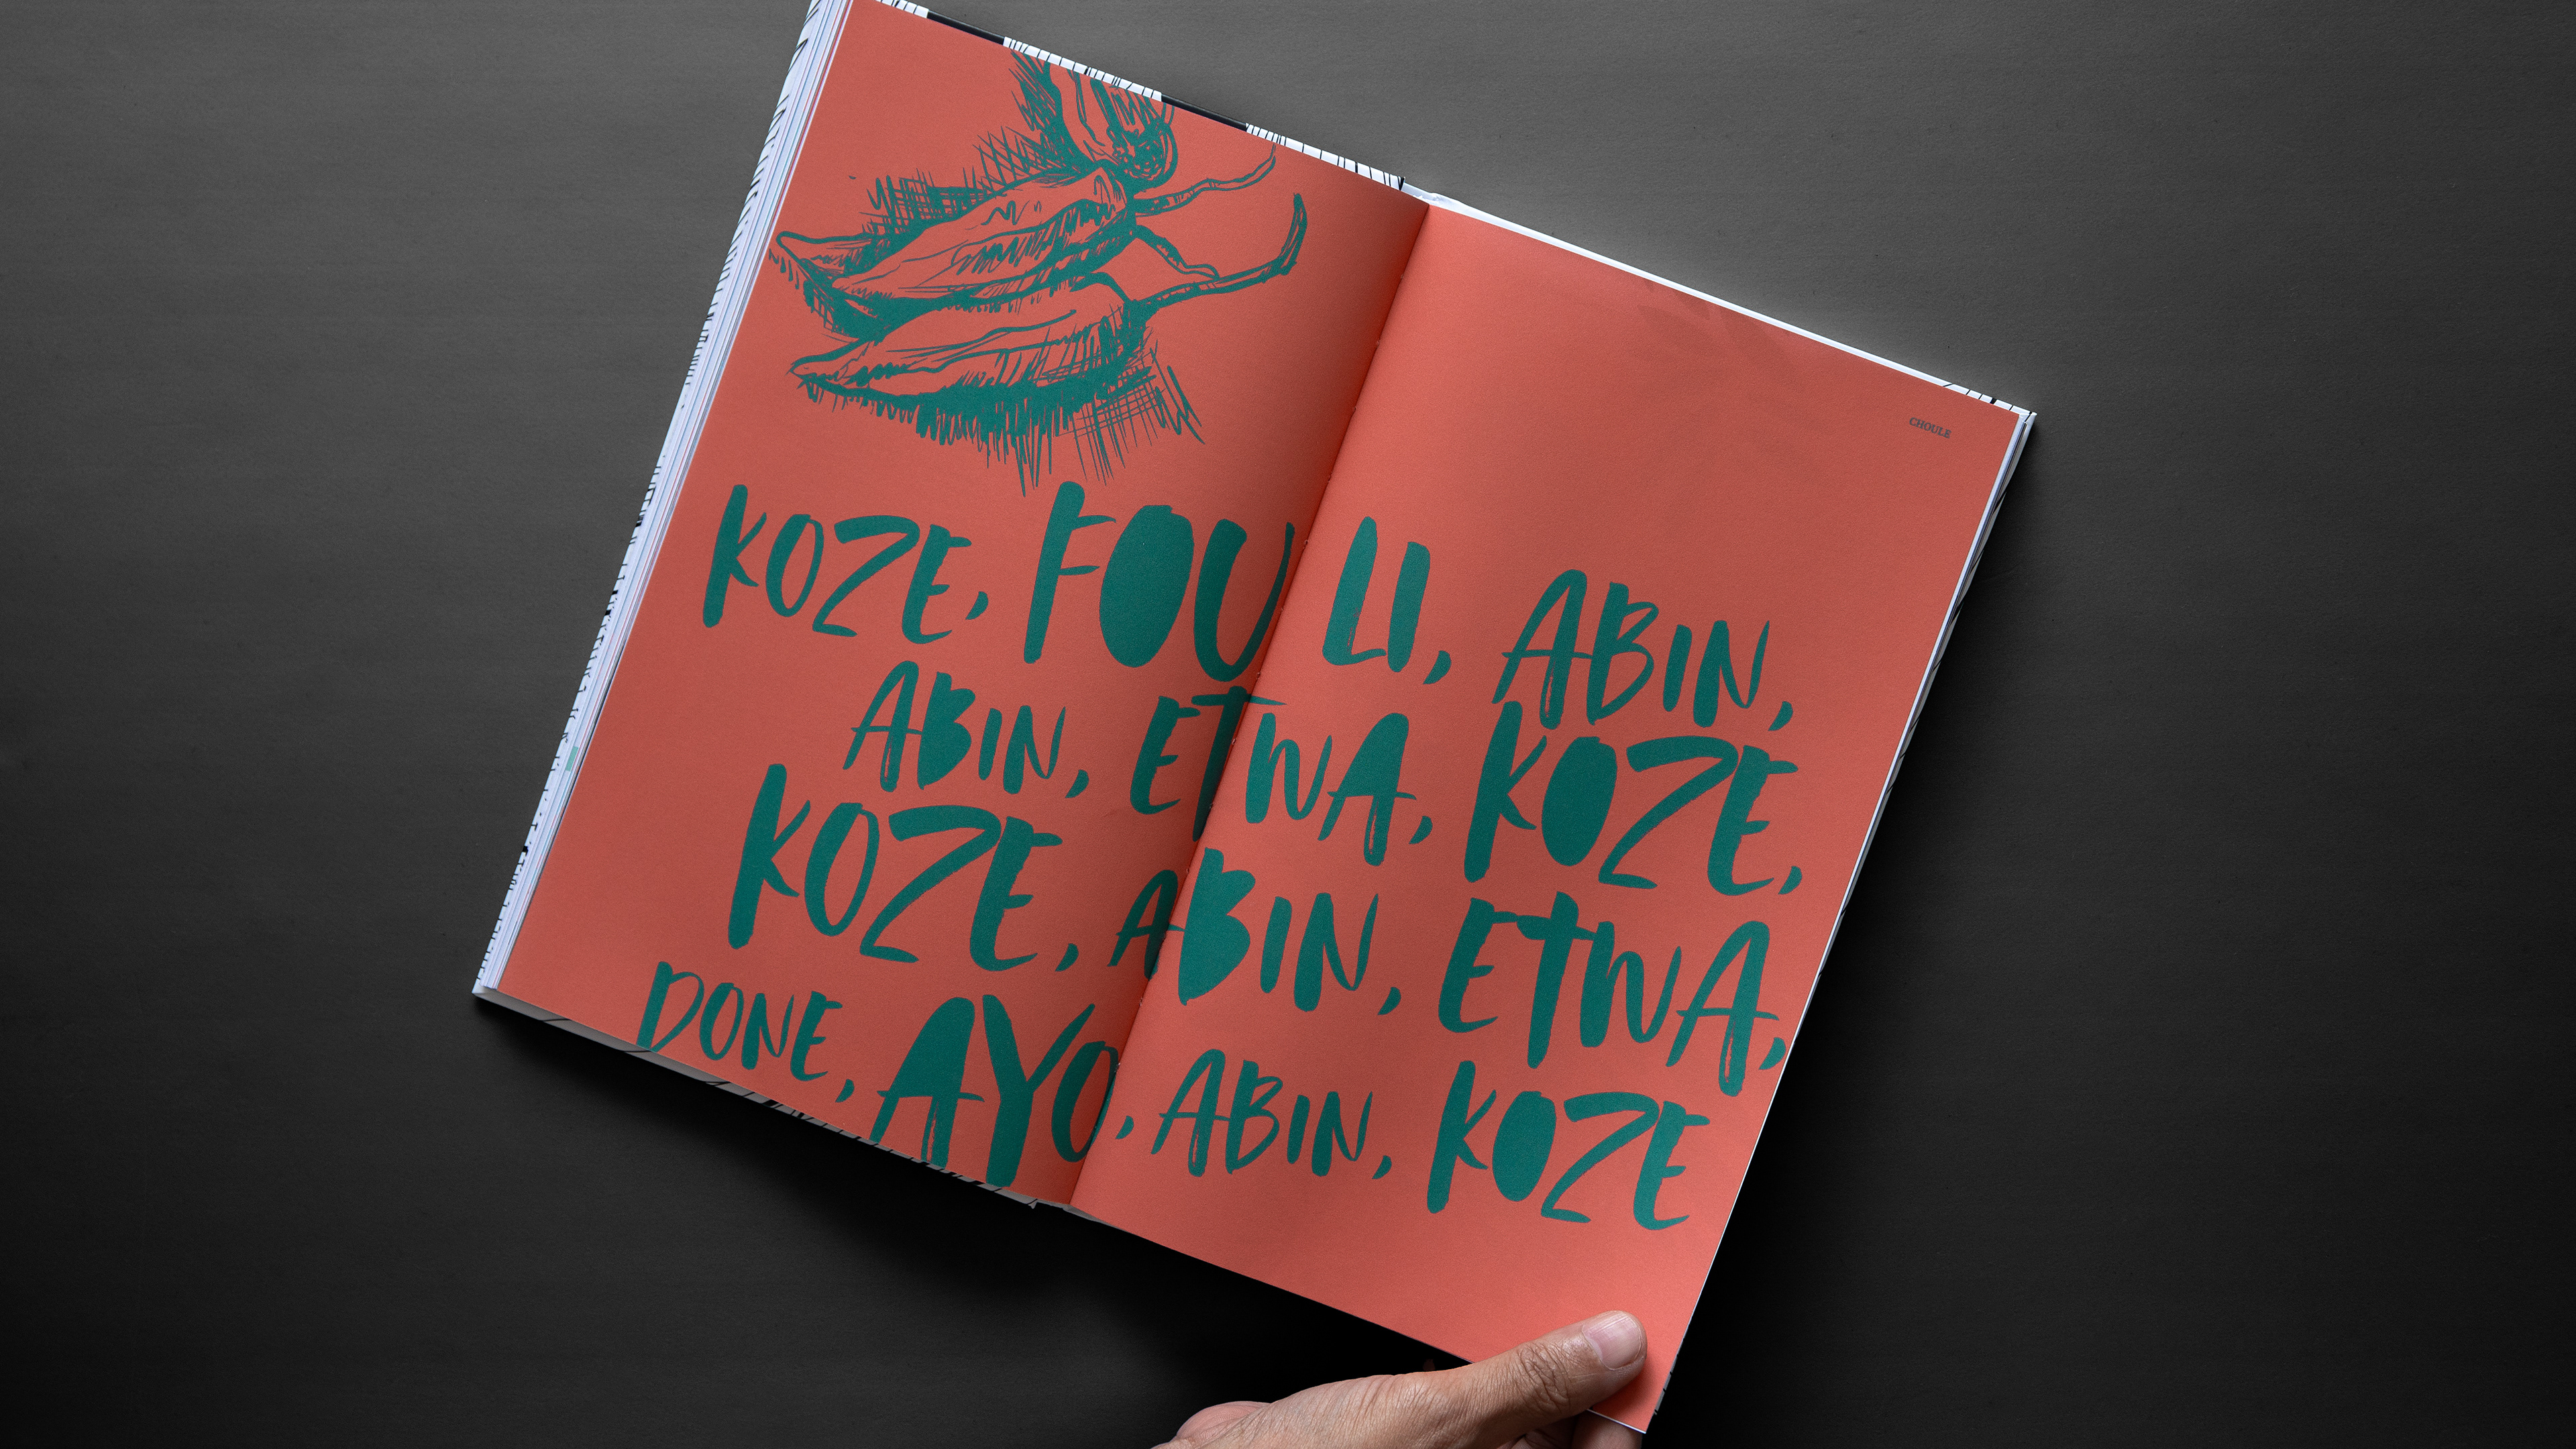 CHOULE
KOZE, FOU LI, ABIN,
ABIN, ETWA, KOZE,
KOZE, ABIN, ETWA,
DONE, AYO, ABIN, KOZE